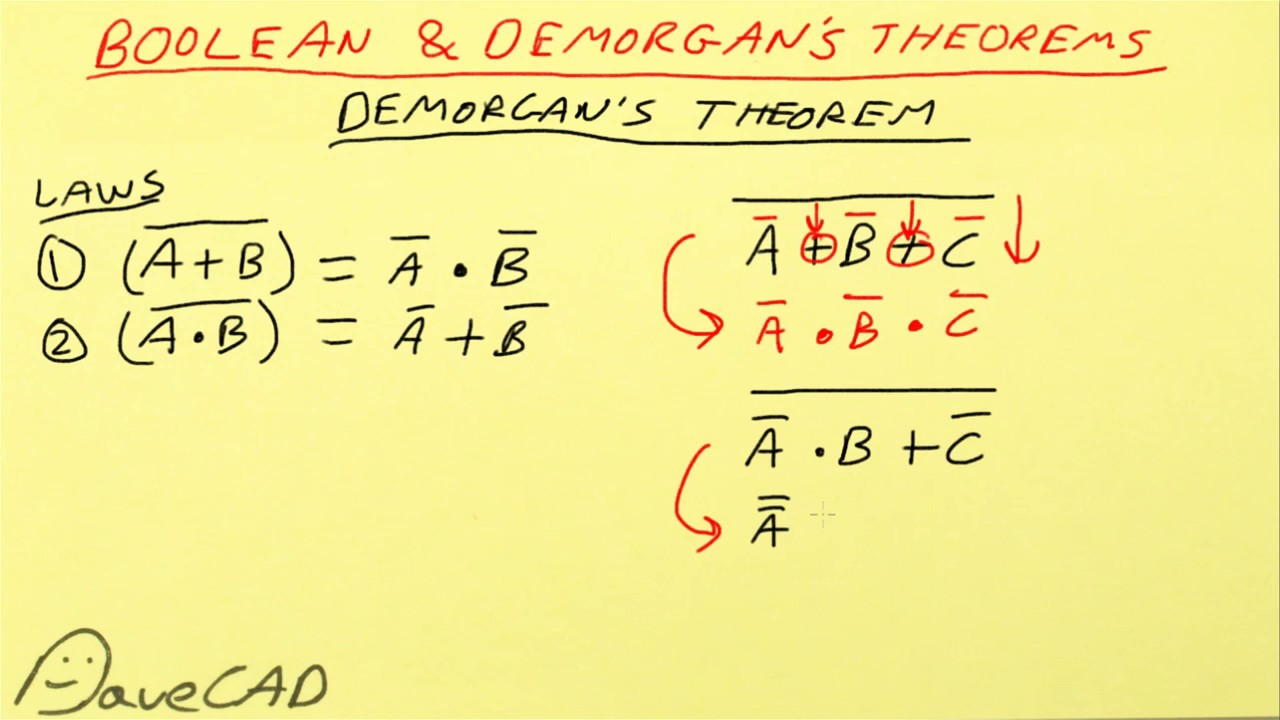 BOOLEAN & DEMORGAN'S THEOREMS
DEMORGAN'S THEOREM
LAWS
① (A̅ ̅+̅ ̅B̅) = A̅ • B̅
② (A̅ ̅•̅ ̅B̅) = A̅ + B̅
A̅ + B̅ + C̅
A̅ • B̅ • C̅
A̅ • B + C̅
A̿
DaveCAD